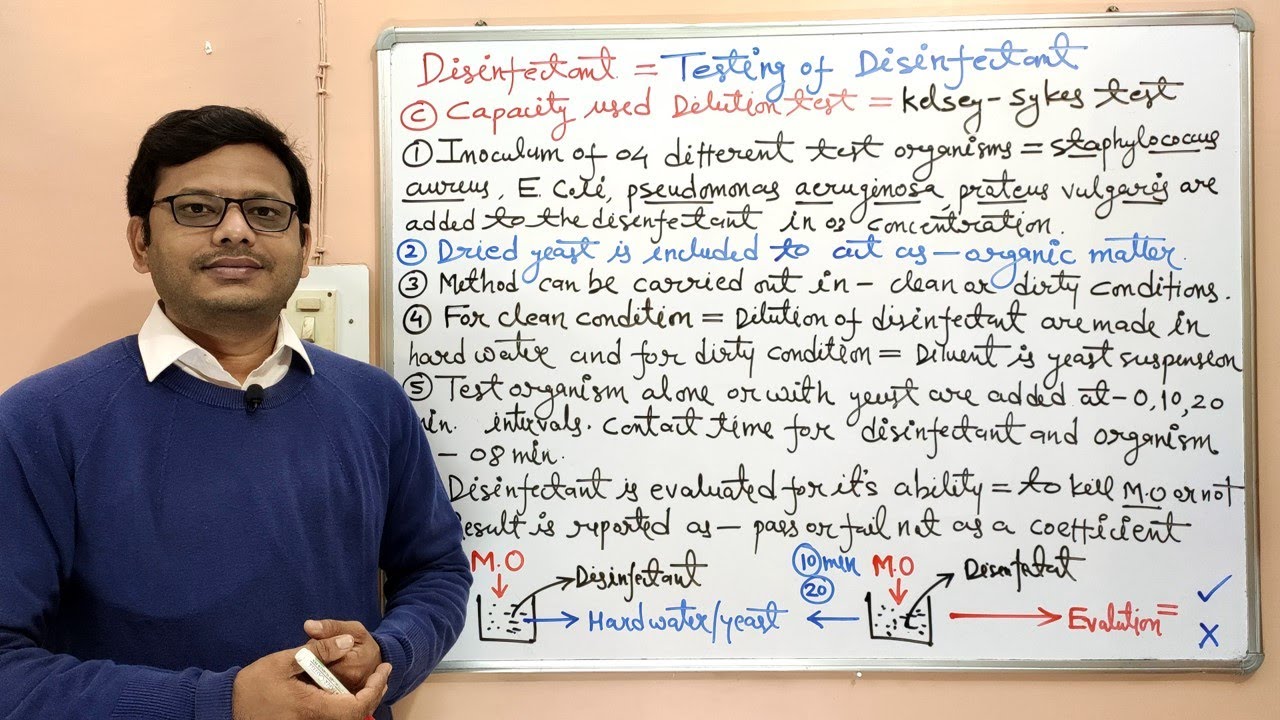 Disinfectant = Testing of Disinfectant
Ⓒ Capacity used Dilution test = Kelsey-Sykes test
① Inoculum of 04 different test organisms = staphylococcus
aureus, E. Coli, pseudomonas aeruginosa, proteus vulgaris are
added to the disinfectant in 03 concentration.
② Dried yeast is included to act as - organic matter.
③ Method can be carried out in - clean or dirty conditions.
④ For clean condition = Dilution of disinfectant are made in
hard water and for dirty condition = Diluent is yeast suspension
⑤ Test organism alone or with yeast are added at - 0, 10, 20
min. intervals. Contact time for disinfectant and organism
- 08 min.
Disinfectant is evaluated for it's ability = to kill M.O or not
Result is reported as - pass or fail not as a coefficient
M.O
Disinfectant
Hard water/yeast
10 min
20
M.O
Disenfectat
Evalution =
✓
X